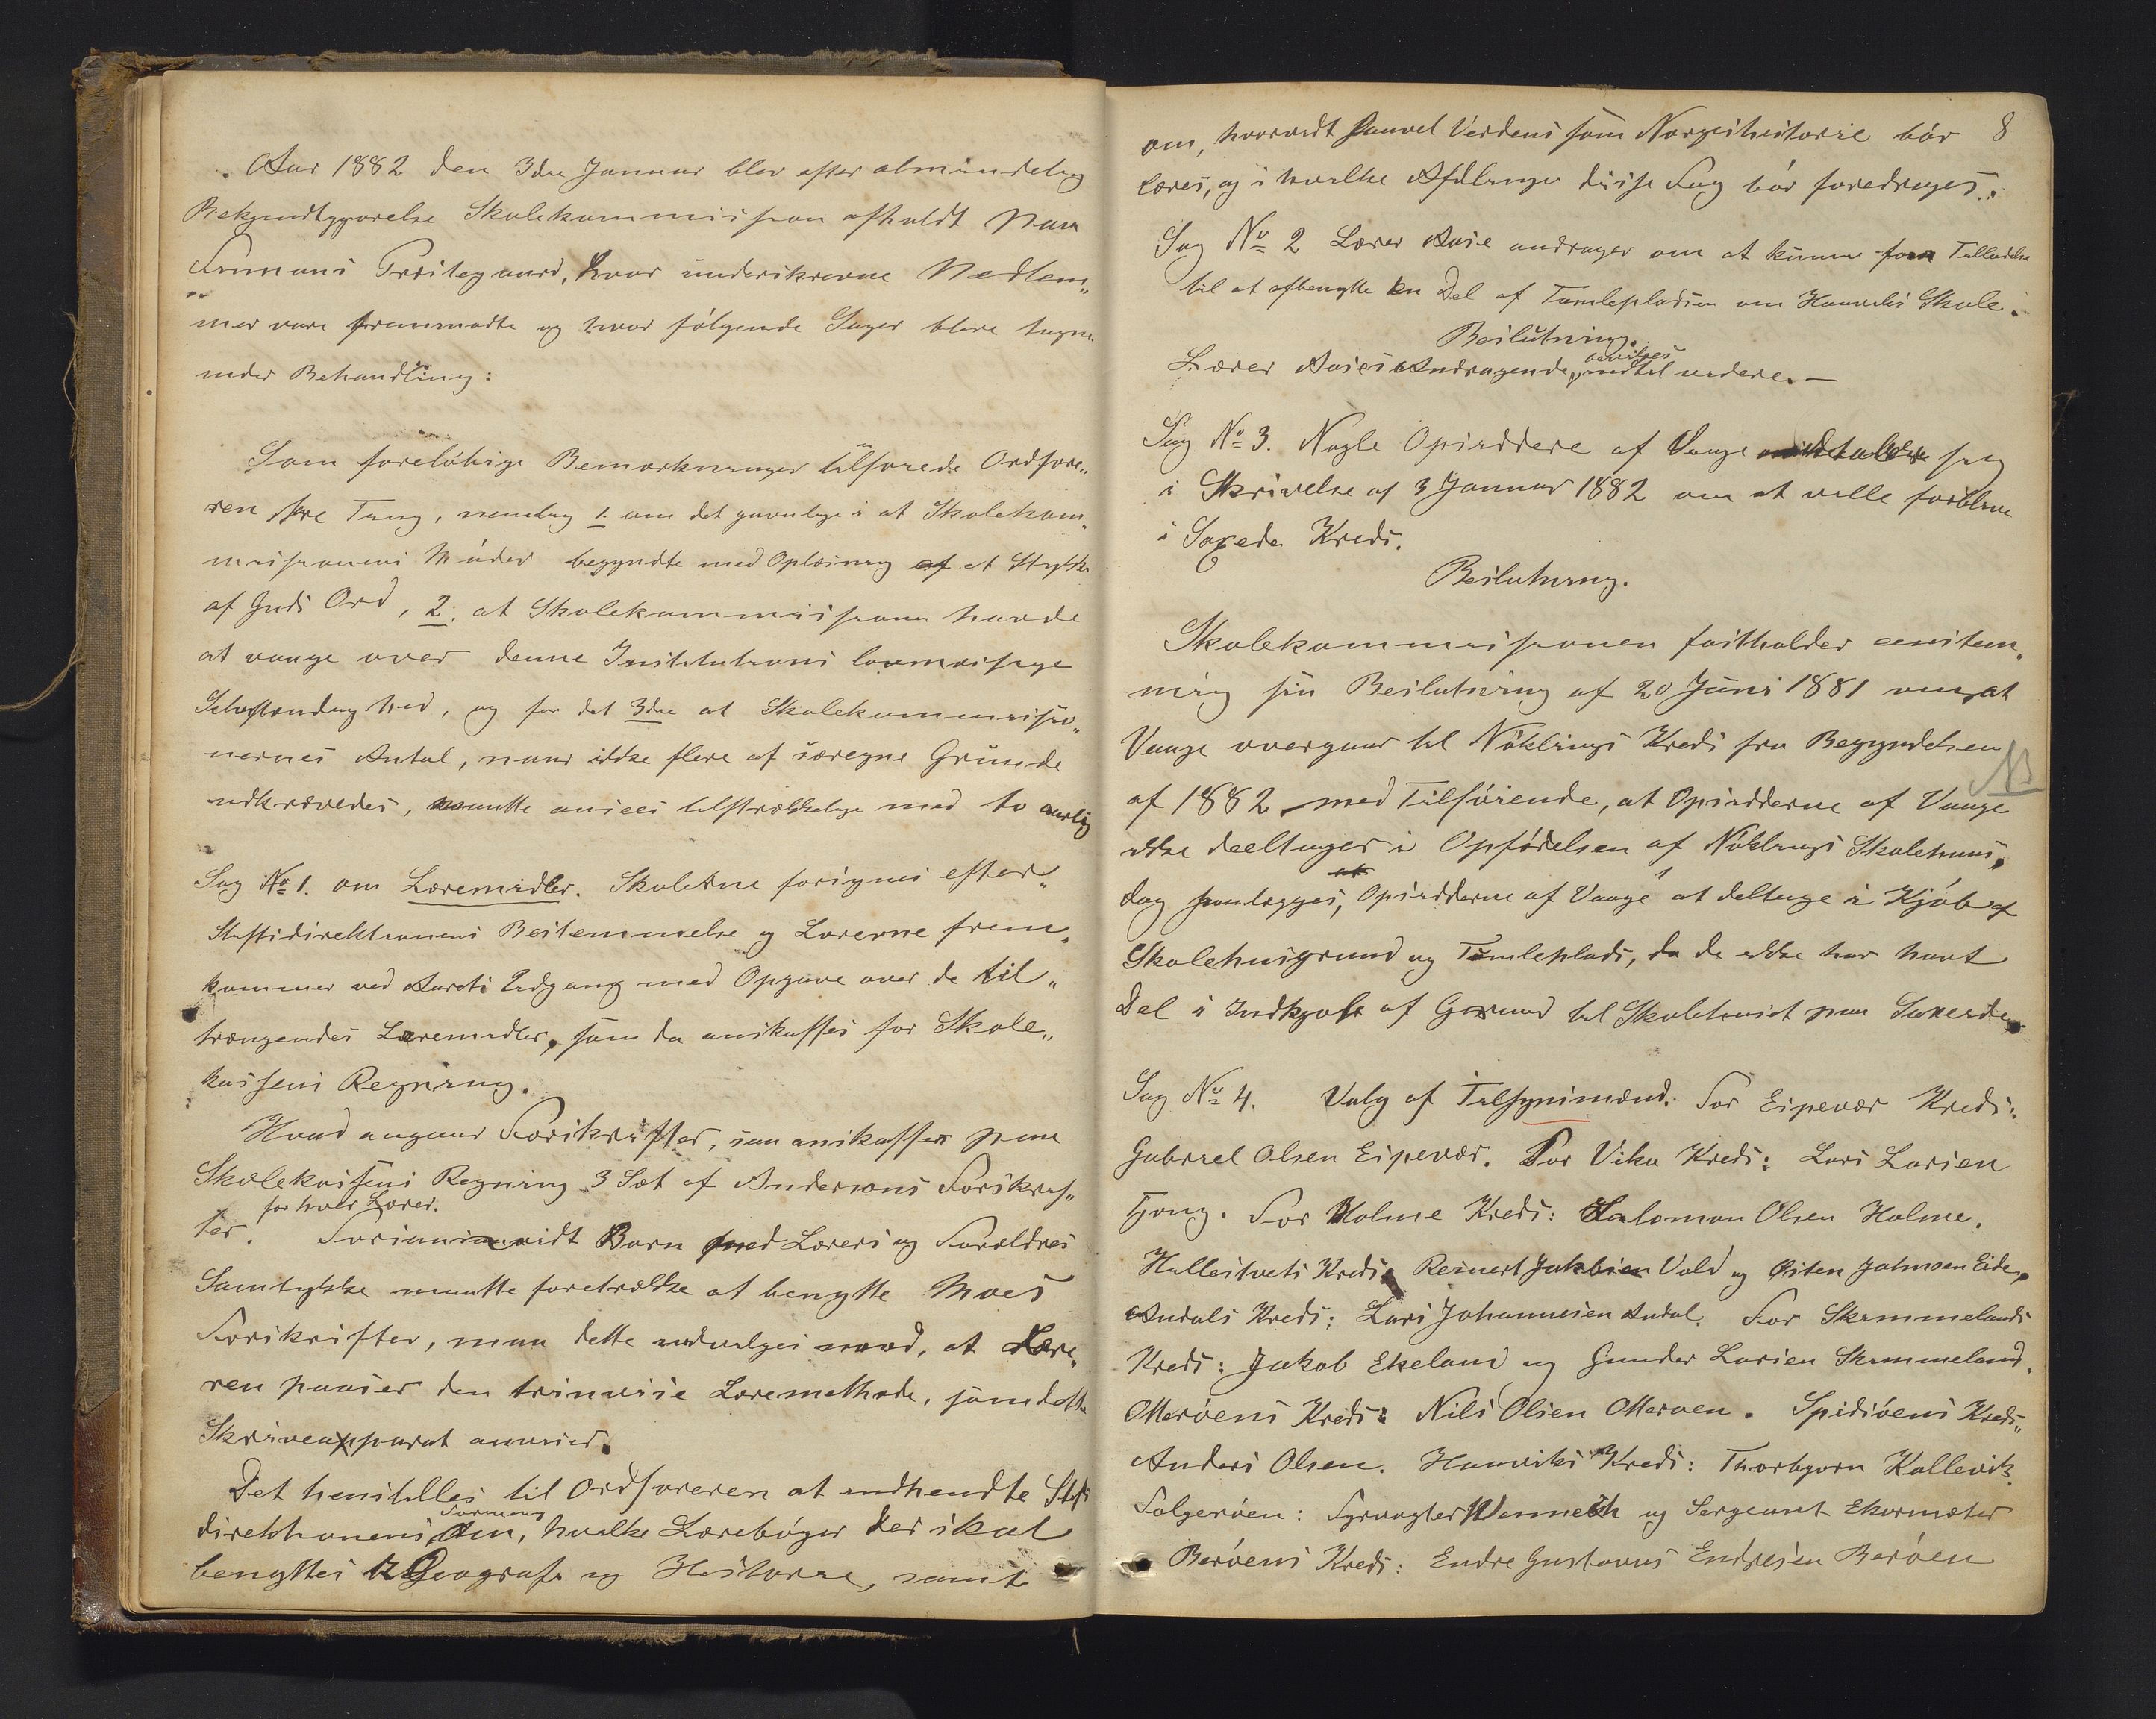 Aar 1882 den 3die Januar blev efter almindelig
Bekjendtgjørelse Skolekommission afholdt paa
Finnaas Præstegaard, hvor underskrevne Medlem„
mer vare fremmødte og hvor følgende Sager bleve tagne
under Behandling:
Som foreløbige Bemærkninger tilførede Ordføre„
ren tre Ting, nemlig 1. om det gavnlige i at Skolekom„
missionens Møder begyndte med Oplæsning af et Stykke
af Guds Ord, 2. at Skolekommissionen havde
at vaage over denne Institutions lovmæssige
Selvstændighed, og for det 3die at Skolekommissio„
nernes Antal, naar ikke flere af særegne Grunde
udkrævedes, maatte ansees tilstrækkelige med to aarlig
Sag No 1. om Læremidler. Skolerne forsynes efter„
Stiftsdirektionens Bestemmelse og Lærerne frem„
kommer ved Aarets Udgang med Opgave over de til„
trængendes Læremidler, som da anskaffes for Skole„
kassens Regning.
Hvad angaar Forskrifter, saa anskaffes paa
Skolekassens Regning 3 Sæt af Andersens Forskrif„
for hver Lærer.
ter. Forsaavidt Børn med Lærers og Forældres
Samtykke maatte foretrække at benytte Moes
Forskrifter, maa dette udvælges mod, at Lære„
ren passer den trinvise Læremethode, som dette
Skriveapparat anviser.
Det henstilles til Ordføreren at indhendte Stifts
Formening
direktionens om, hvilke Lærebøger der skal
benyttes i Geografi og Historie, samt
8
om, hvorvidt saavel Verdens som Norgeshistorie bør
læres, og i hvilke Afdelinger disse Fag bør foredrages.
Sag No 2 Lærer Aase andrager om at kunne faa Tilladelse
til at afbenytte en Del af Tomtepladsen om Haaviks Skole.
Beslutning.
bevilges
Lærer Aases Andragende indtil videre. —
Sag No 3. Nogle Opsiddere af Vaage sig
i Skrivelse af 3 Januar 1882 om at ville forblive
i Kreds.
Beslutning.
Skolekommissionen fastholder eenstem„
mig sin Beslutning af 20 Juni 1881 om, at
Vaage overgaar til Nøklings Kreds fra Begyndelsen
NB
af 1882 med Tilføiende, at Opsidderne af Vaage
ikke deeltager i Opførelsen af Nøklings Skolehuus,
dog paalægges, Opsidderne af Vaage at deltage i Kjøb af
Skolehusgrund og Tomteplads, da de ikke har havt
Del i Indkjøb af Grund til Skolehuset paa
Sag No 4. Valg af Tilsynsmænd. For Espevær Kreds:
Gabriel Olsen Espevær. For Vika Kreds: Lars Larsen
Tjong. For Holme Kreds: Salomon Olsen Holme.
Hallestvets Kreds: Reinert Jakobsen Vold og Østen Johnsen Eide,
Andals Kreds: Lars Johannesen Andal. For Skimmelands
Kreds: Jakob Ekeland og Gunder Larsen Skimmeland.
Otterøens Kreds: Nils Olsen Otterøen. Spidsøens Kreds„
Anders Olsen. Haaviks Kreds: Thorbjørn Kallevik.
Folgerøen: Fyrvogter Wenneck og Sergeant Ekornsæter
Børøens Kreds: Endre Gustavus Endresen Børøen